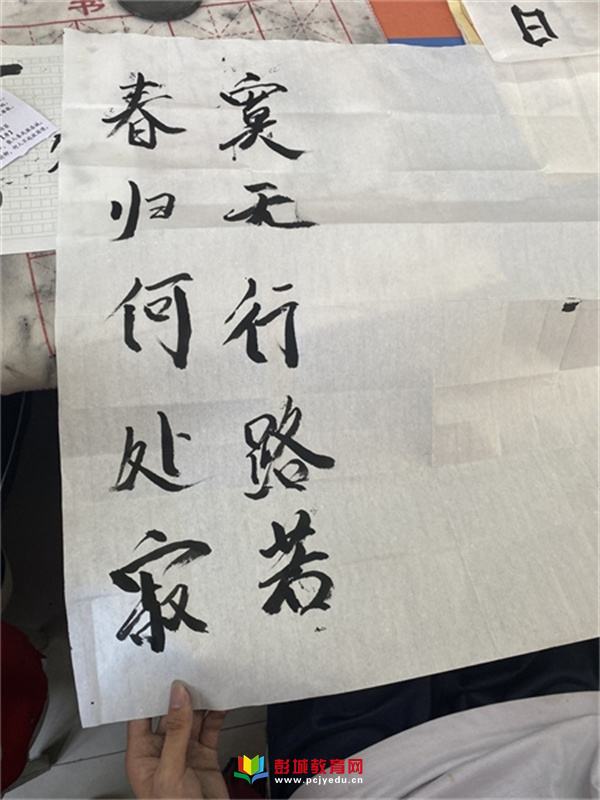 春归何处寂
寞无行路若
日
彭城教育网
www.pcjyedu.cn